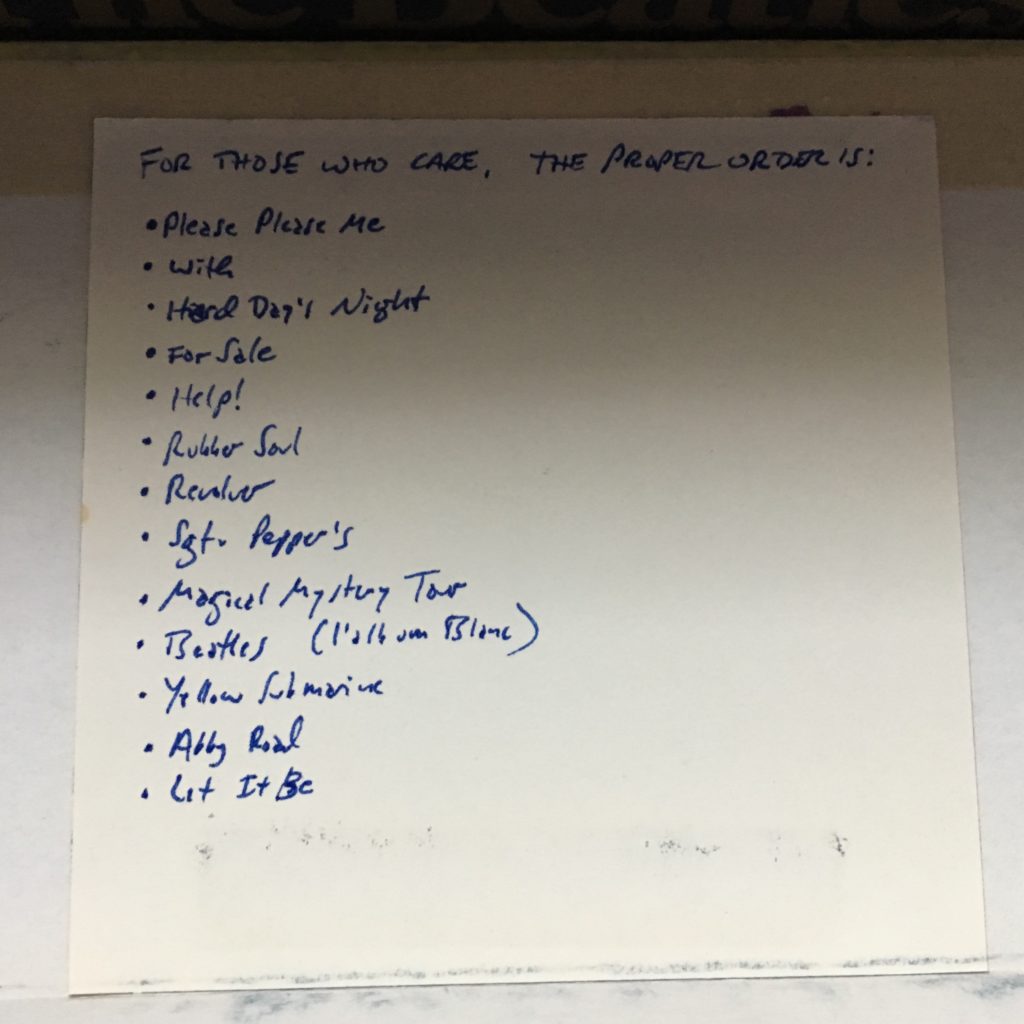 The Beatles
FOR THOSE WHO CARE, THE PROPER ORDER IS:
• Please Please Me
• With
• Hard Day's Night
• For Sale
• Help!
• Rubber Soul
• Revolver
• Sgt. Pepper's
• Magical Mystery Tour
• Beatles (l'album Blanc)
• Yellow Submarine
• Abby Road
• Let It Be